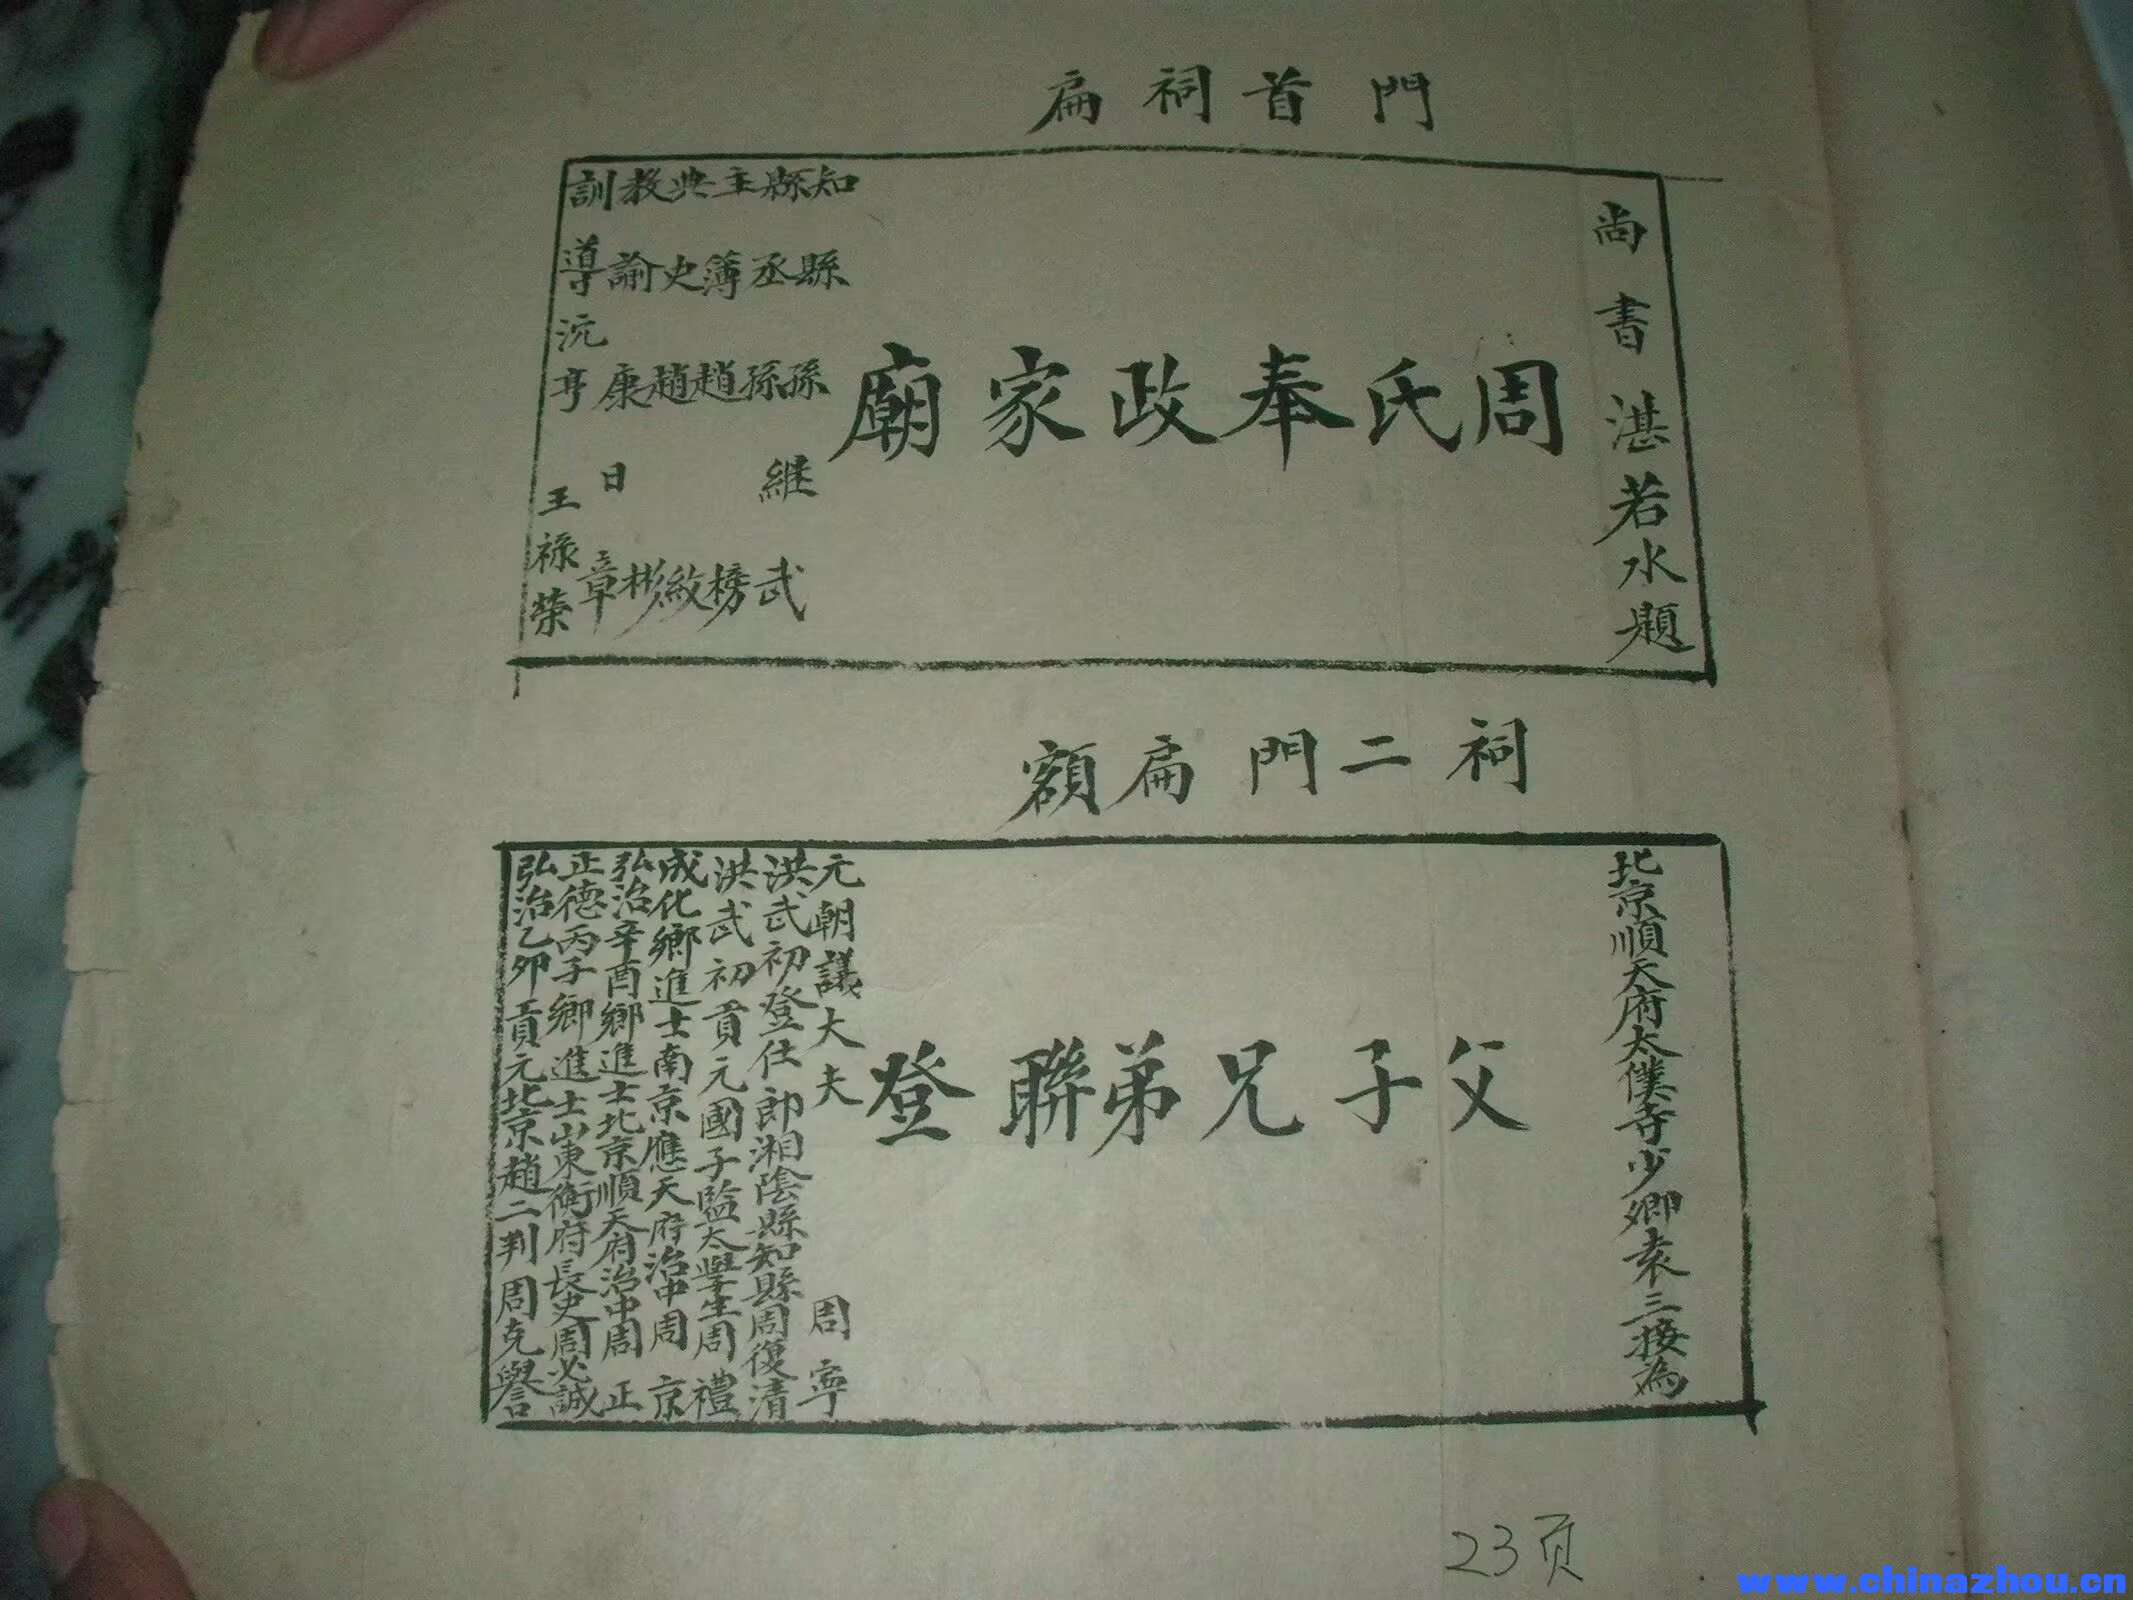 門首祠扁
尚書湛若水題
周氏奉政家廟
知縣孫繼武
縣丞孫榜
主簿趙
典史趙彬
教諭康日章
訓導沅亨王祿榮
祠二門扁額
北京順天府太僕寺少卿袁三接為
父子兄弟聯登
元朝議大夫周寧
洪武初登仕郎湘陰縣知縣周復清
洪武初貢元國子監太學生周禮
成化鄉進士南京應天府治中周京
弘治辛酉鄉進士北京順天府治中周正
正德丙子鄉進士山東衡府長史周必誠
弘治乙卯貢元北京趙二判周克譽
23页
www.chinazhou.cn